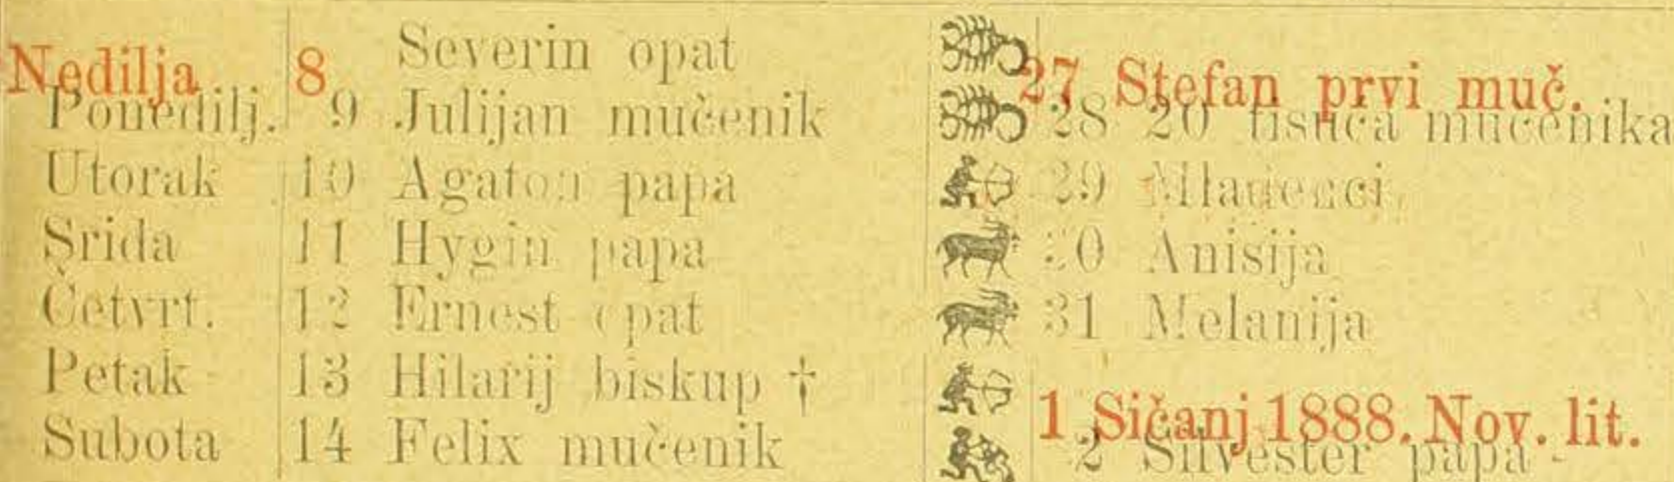 Nedilja 8 Severin opat 27 Stefan prvi muč.
Ponedilj. 9 Julijan mučenik 28 20 tisuća mučenika
Utorak 10 Agaton papa 29 Mladenci
Srida 11 Hygin papa 30 Anisija
Četvrt. 12 Ernest opat 31 Melanija
Petak 13 Hilarij biskup † 1 Sičanj 1888. Nov. lit.
Subota 14 Felix mučenik 2 Silvester papa